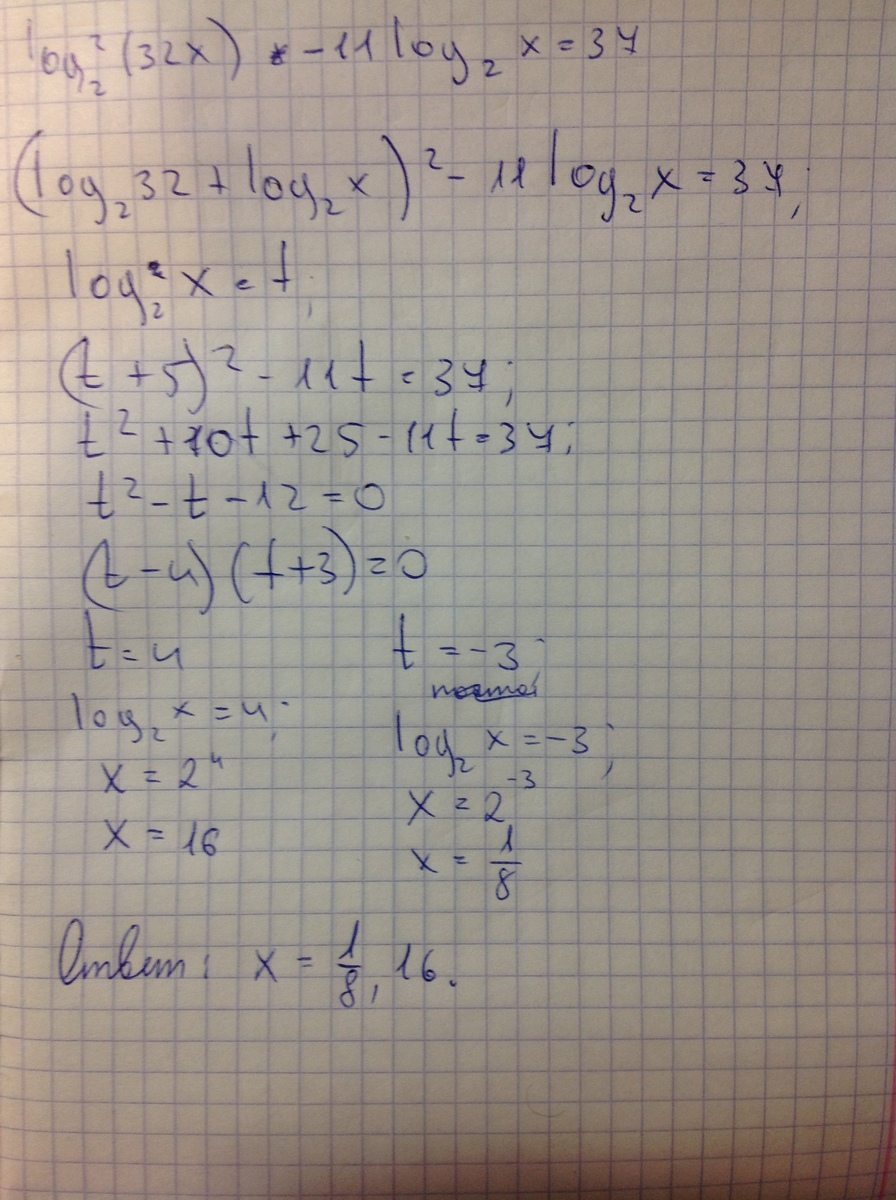 log₂²(32x) - 11 log₂ x = 37
(log₂ 32 + log₂ x)² - 11 log₂ x = 37;
log₂ x = t;
(t + 5)² - 11t = 37;
t² + 10t + 25 - 11t = 37;
t² - t - 12 = 0
(t - 4)(t + 3) = 0
t = 4 t = -3;
log₂ x = 4; log₂ x = -3;
x = 2⁴ x = 2⁻³
x = 16 x = 1/8
Ответ: x = 1/8, 16.